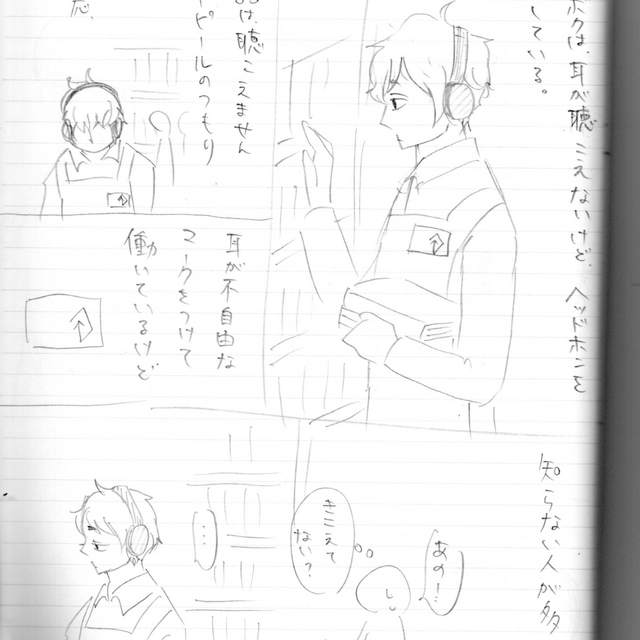 ボクは、耳が聴こえないけど、ヘッドホンを
している。
は、聴こえません
ピールのつもり
耳が不自由な
マークをつけて
働いているけど
知らない人が多
あの…
きこえて
ない?
…